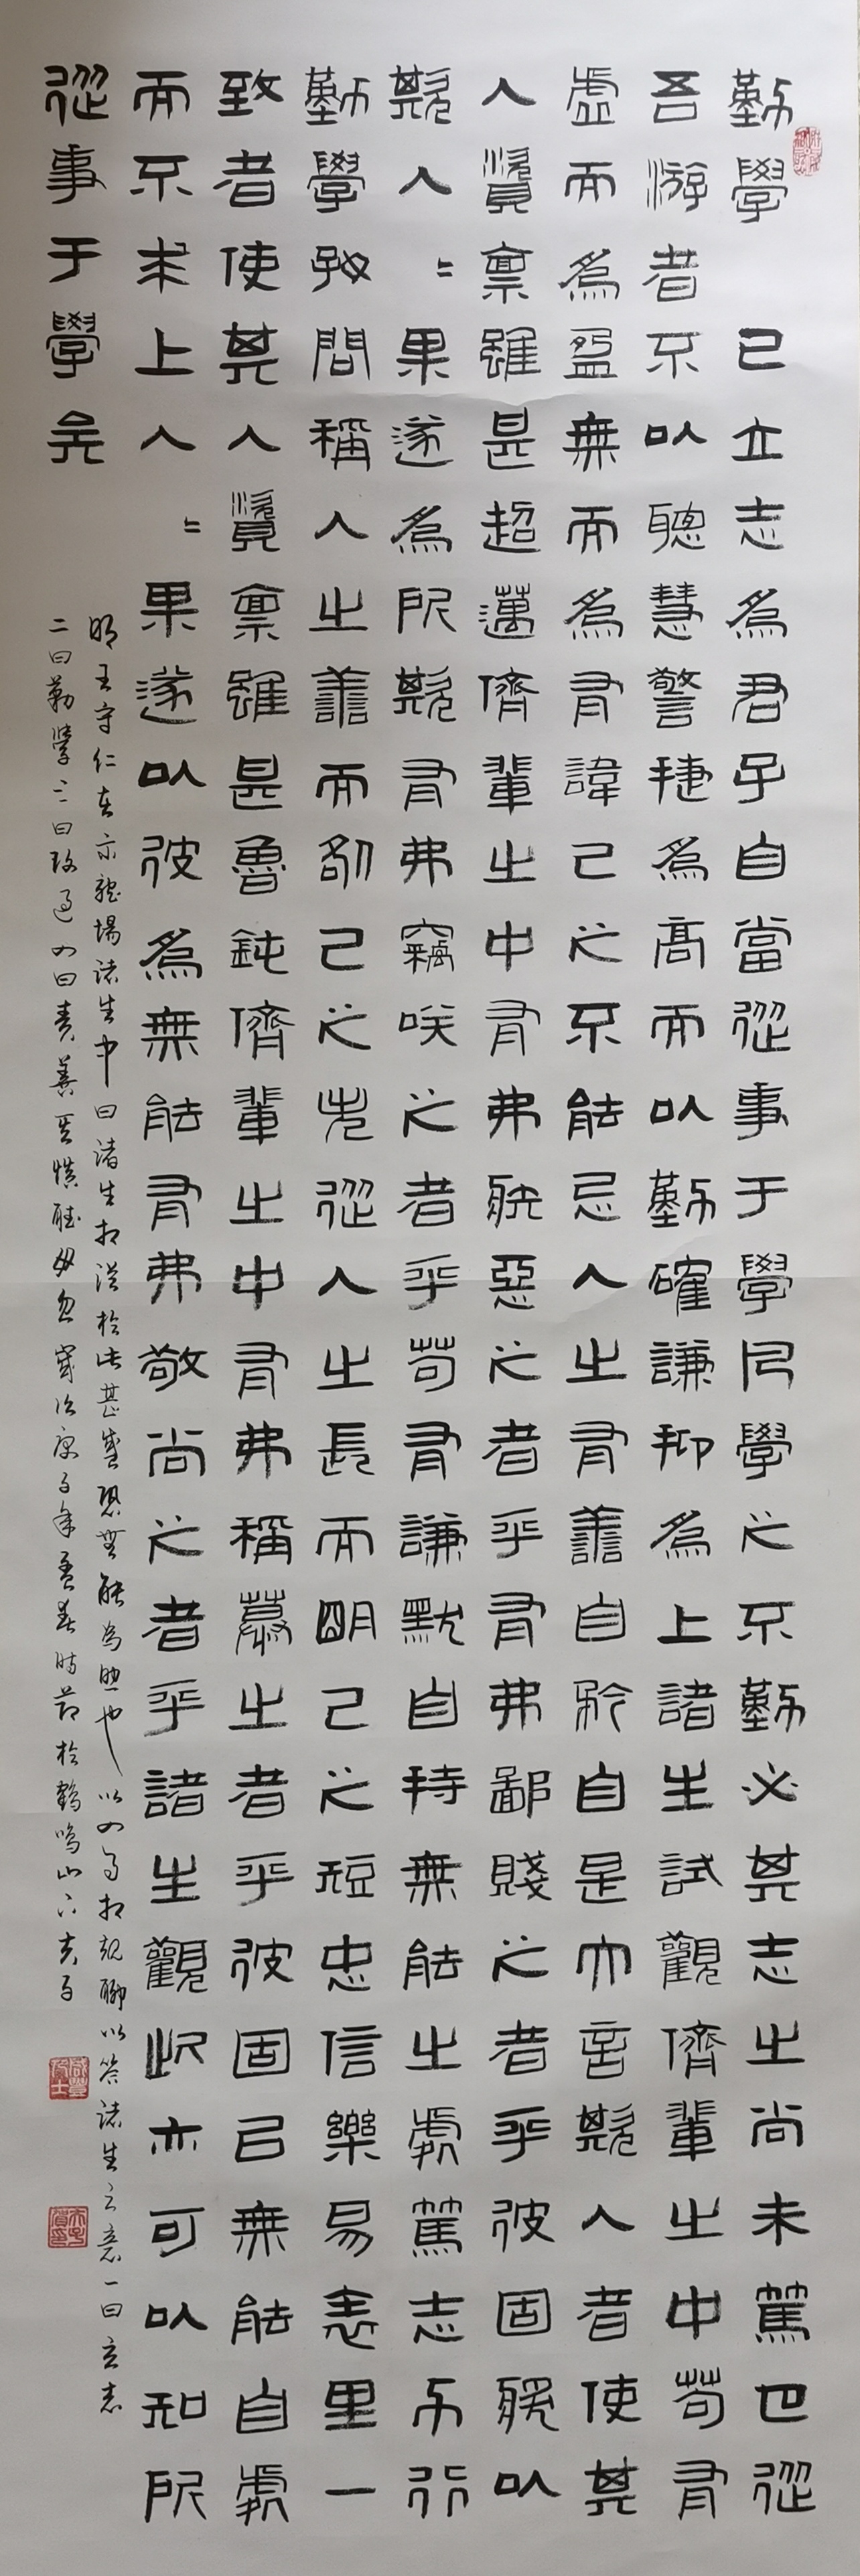 勤學 已立志為君子自當從事于學凡學之不勤必其志之尚未篤也從
吾游者不以聰慧警捷為高而以勤確謙抑為上諸生試觀儕輩之中苟有
虛而為盈無而為有諱己之不能忌人之有善自矜自是大言欺人者使其
人資稟雖甚超邁儕輩之中有弗疾惡之者乎有弗鄙賤之者乎彼固將以
欺人〻果遂為所欺有弗竊咲之者乎苟有謙默自持無能之處篤志力行
勤學好問稱人之善而咎己之失從人之長而明己之短忠信樂易表里一
致者使其人資稟雖甚魯鈍儕輩之中有弗稱慕之者乎彼固已無能自處
而不求上人〻果遂以彼為無能有弗敬尚之者乎諸生觀此亦可以知所
從事于學矣
明王守仁在示龍場諸生中曰諸生相從於此甚盛恐無能為助也以四事相規聊以答諸生之意一曰立志
二曰勤學三曰改過四曰責善其慎聽毋忽歲次庚子年孟春時節於鶴鳴山下